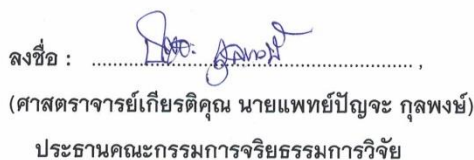 ลงชื่อ : ........................................................ ,
(ศาสตราจารย์เกียรติคุณ นายแพทย์ปัญจะ กุลพงษ์)
ประธานคณะกรรมการจริยธรรมการวิจัย